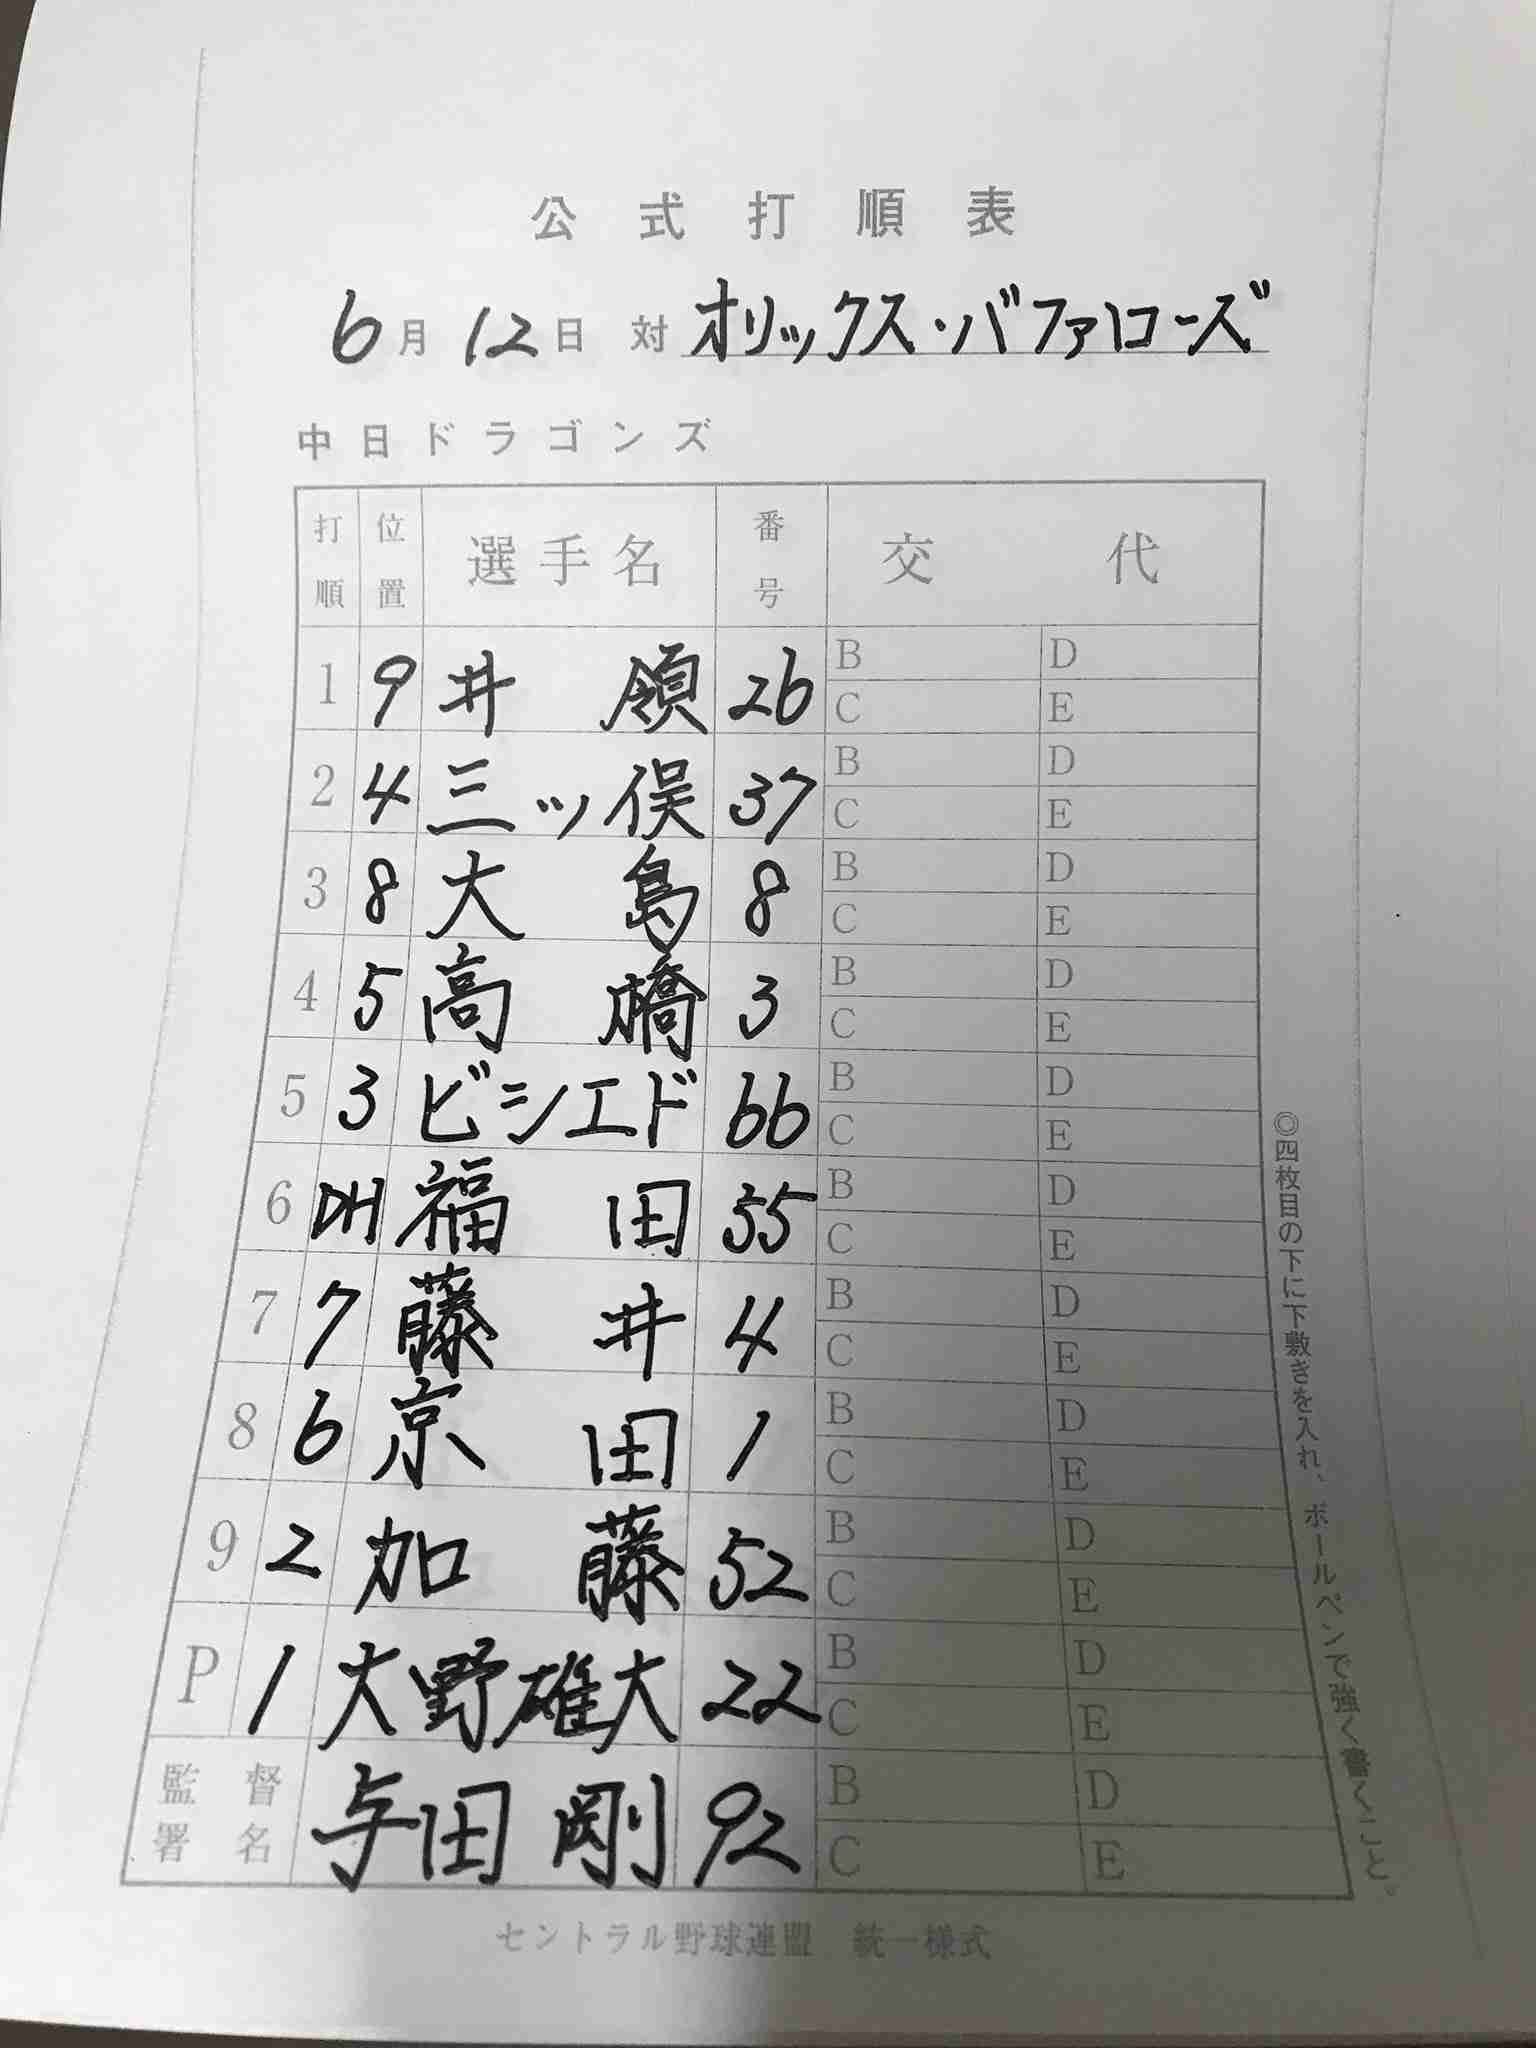 公式打順表
6月12日 対 オリックス・バファローズ
中日ドラゴンズ
打順 位置 選手名 番号 交代
1 9 井領 26 B D
C E
2 4 三ッ俣 37 B D
C E
3 8 大島 8 B D
C E
4 5 高橋 3 B D
C E
5 3 ビシエド 66 B D
C E
6 DH 福田 55 B D
C E
7 7 藤井 4 B D
C E
8 6 京田 1 B D
C E
9 2 加藤 52 B D
C E
P 1 大野雄大 22 B D
C E
監督署名 与田剛 92 B D
C E
◎四枚目の下に下敷きを入れ、ボールペンで強く書くこと。
セントラル野球連盟 統一様式